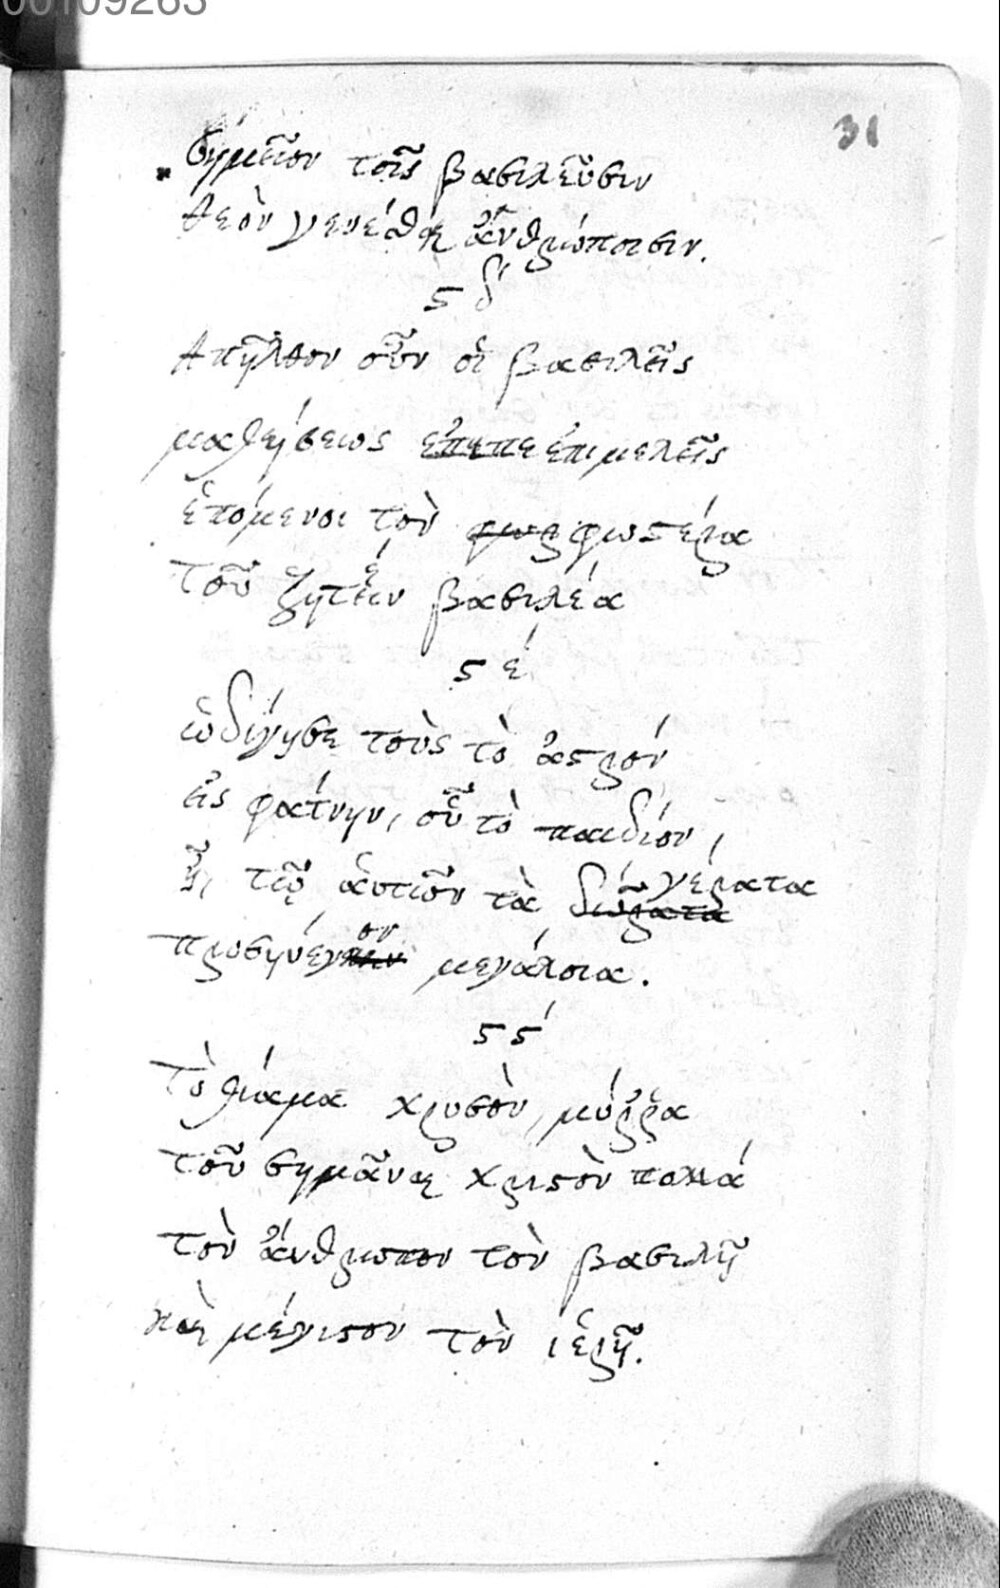 00109263
31
σημεῖον τοῖς βασιλεῦσιν
θεὸν γενέσθαι ἄνθρώποισιν.
ς δ΄
Ἀπῆλθον οὖν οἱ βασιλεῖς
μαθήσεως ἐπιμελεῖς
ἑπόμενοι τὸν φωρ φωστέρα
τοῦ ζητεῖν βασιλέα
ς έ
ὡδίγησε τοὺς τὸ ἀστρόν
εἰς φάτνην, οὗ τὸ παιδίον,
ᾗ, τῷ ἀυτιοῦν τὰ δῶρατα γέρατα
προσηνέγκον μεγάλοια.
ς ς΄
τὸ θύαμα χρυσὸν, μύῤῥα
τοῦ σημᾶναι χριστὸν πολλά
τὸν ἄνθρωπον τὸν βασιλῆ
καὶ μέγιστον τὸν ἱερῆ.